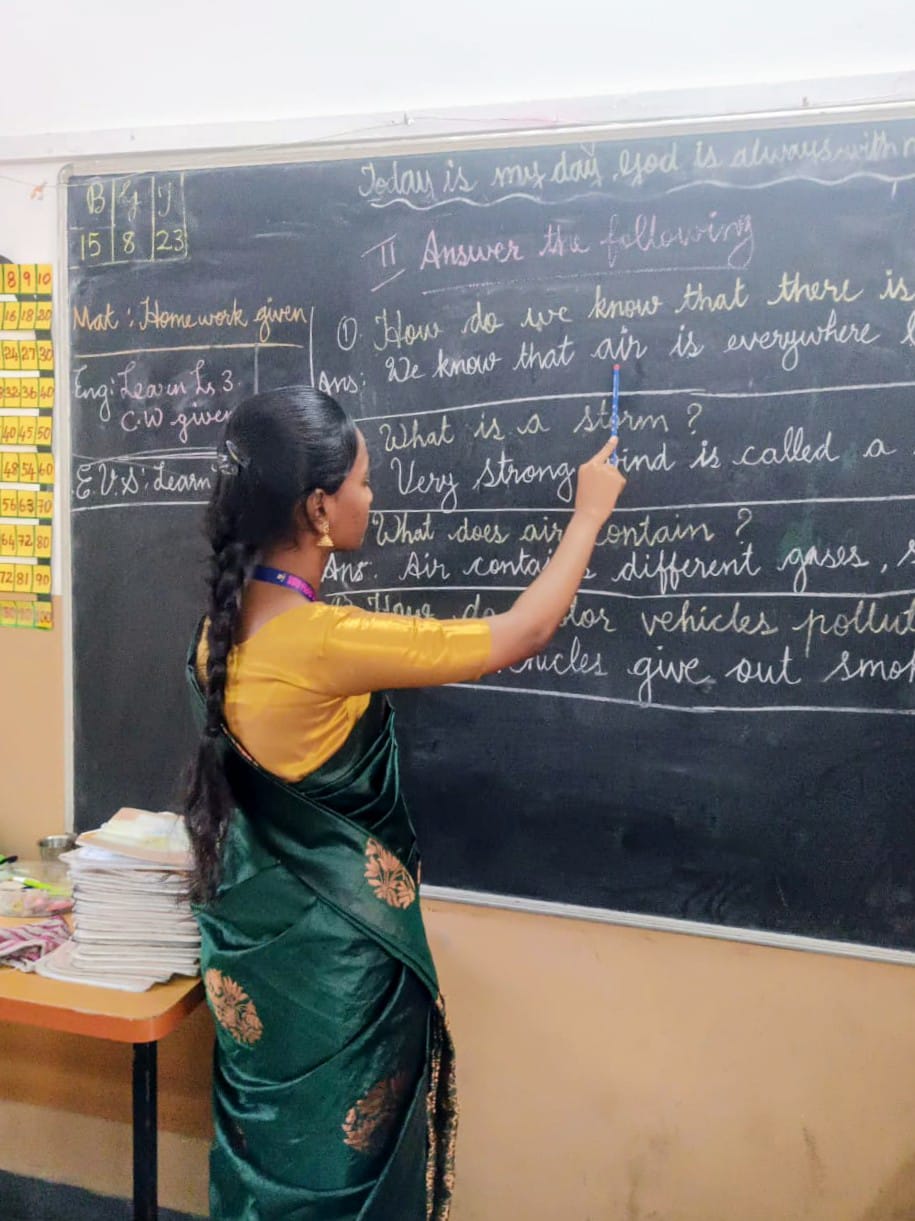 Today is my day. God is always with
B G T
15 8 23
II Answer the following
Mat: Homework given
Eng: Learn Ls 3.
C.W given
E.V.S: Learn
① How do we know that there is
Ans: We know that air is everywhere
What is a storm ?
Very strong wind is called a
What does air contain ?
Ans. Air contains different gases,
How do vehicles pollut
vehicles give out smo
8 9 10
16 18 20
24 27 30
32 36 40
40 45 50
48 54 60
56 63 70
64 72 80
72 81 90